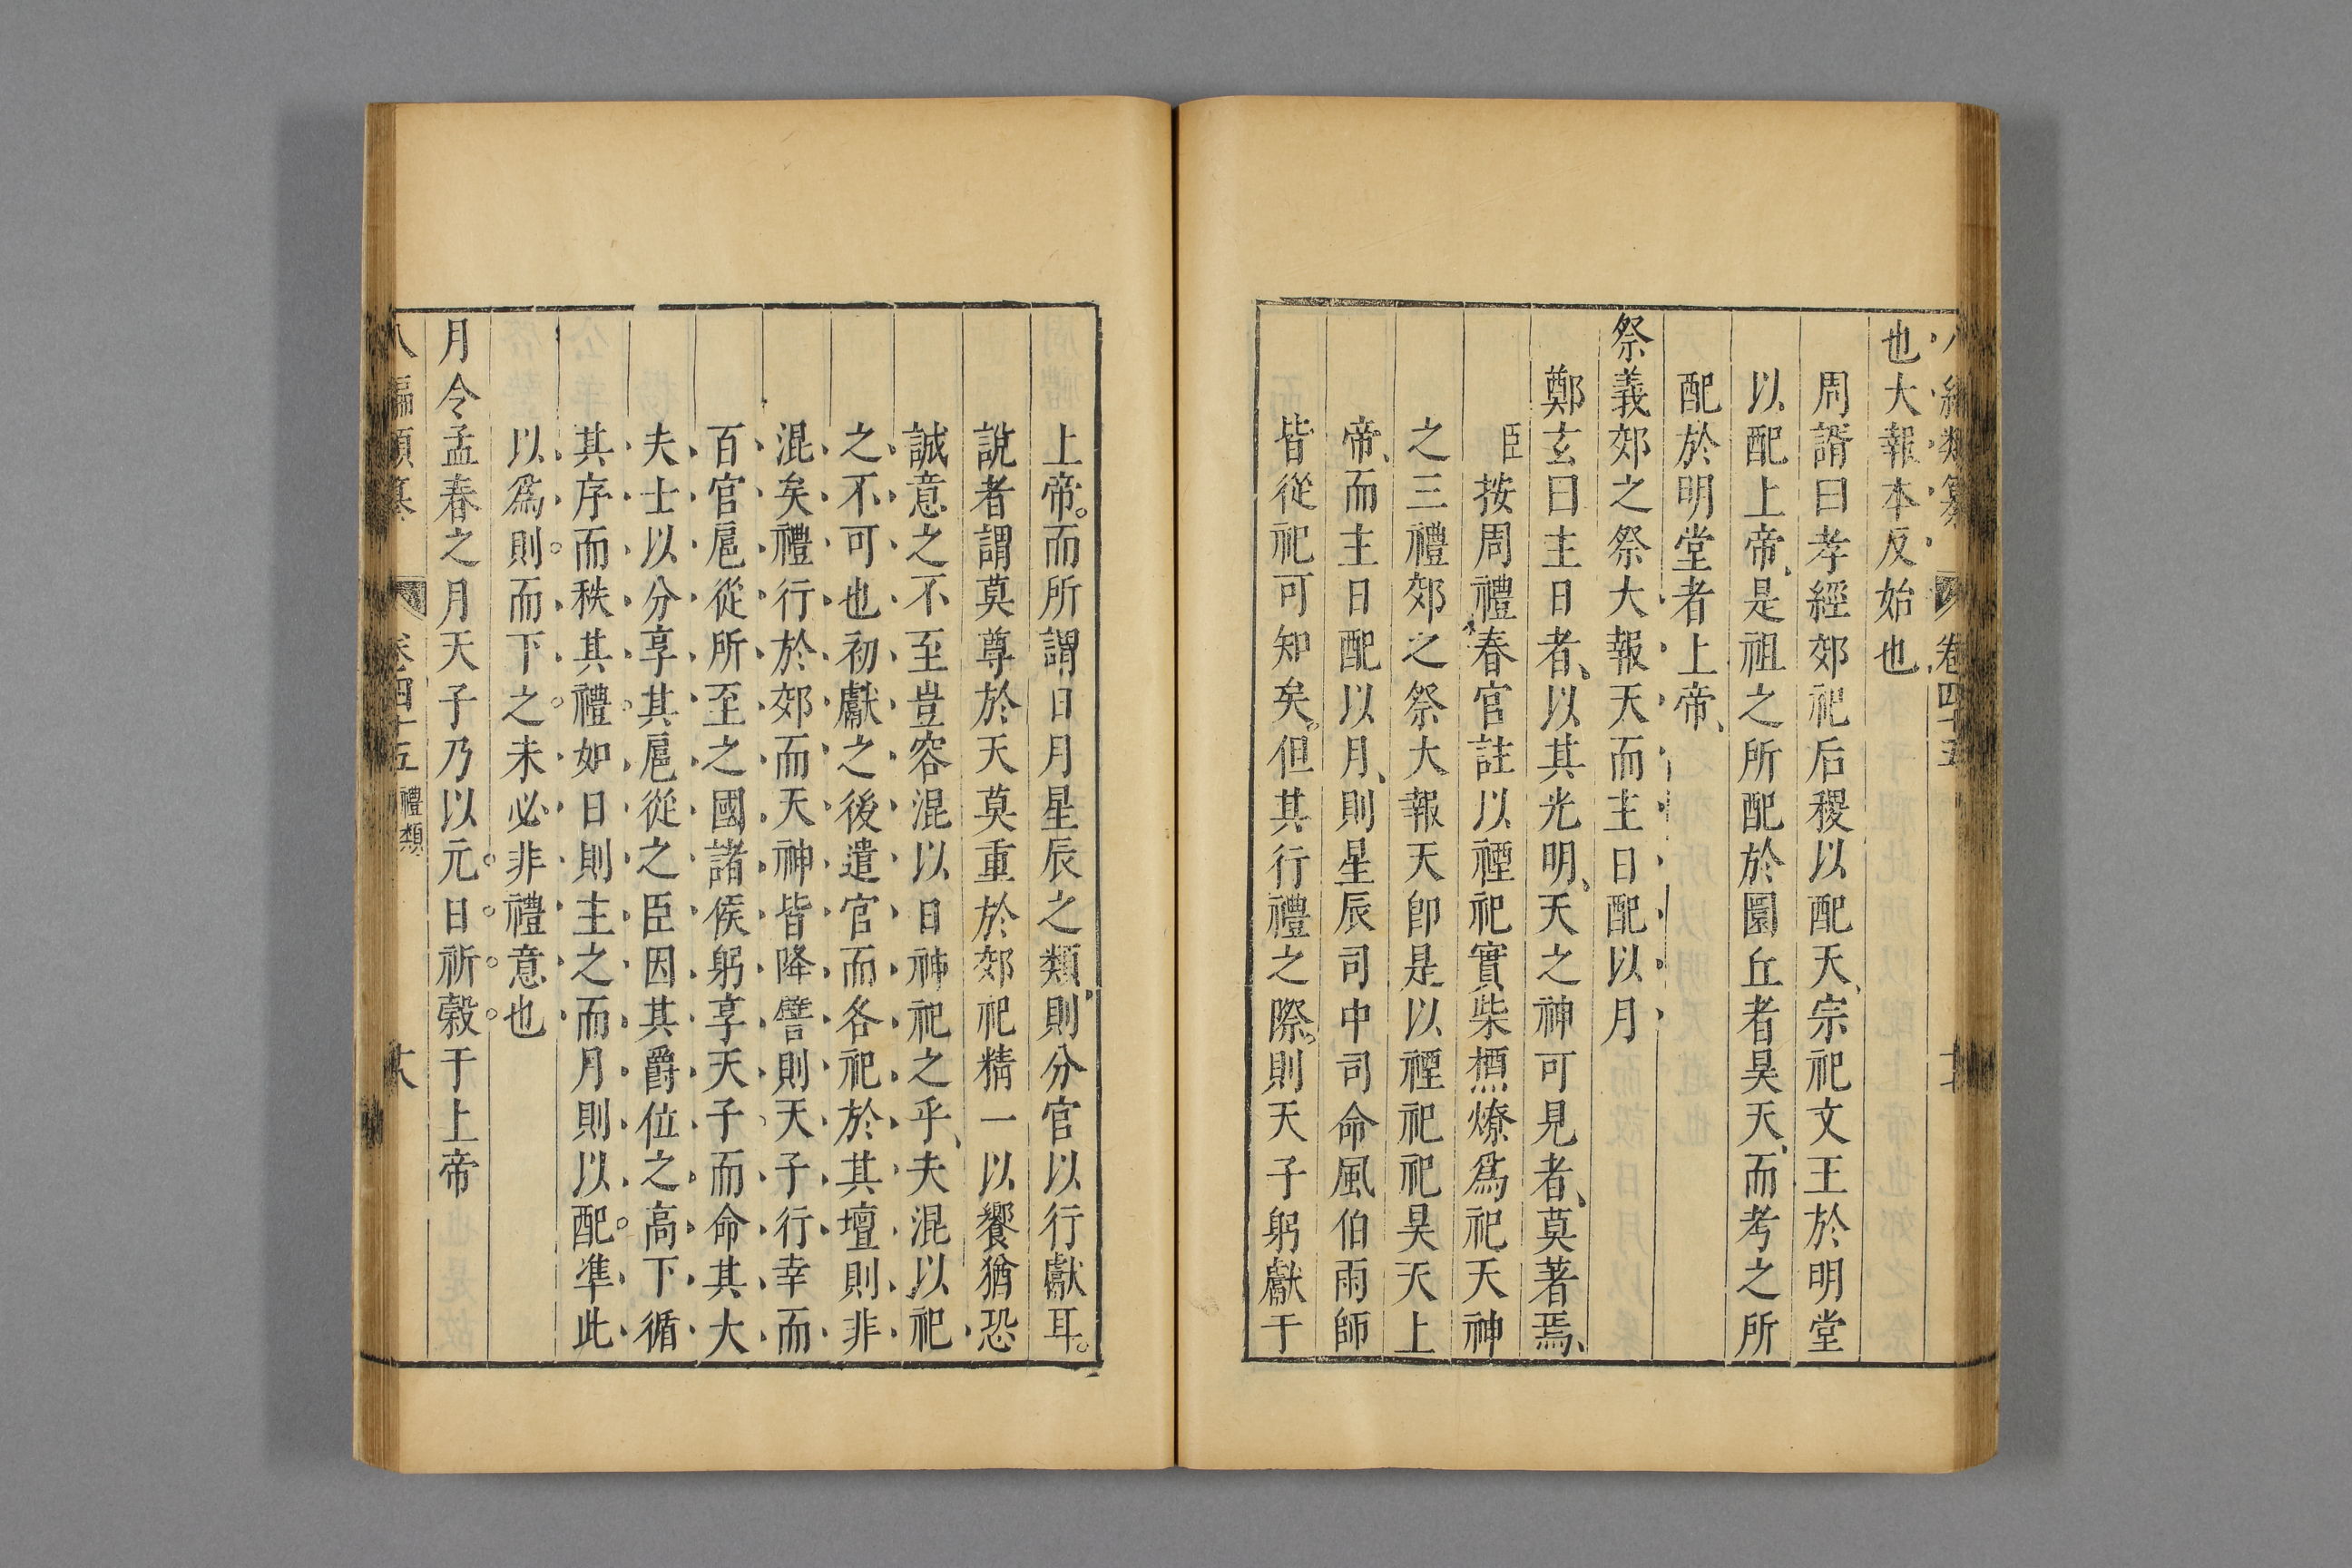 八編類纂 卷四十五
也大報本反始也
周諝曰孝經郊祀后稷以配天宗祀文王於明堂
以配上帝是祖之所配於圜丘者昊天而考之所
配於明堂者上帝
祭義郊之祭大報天而主日配以月
鄭玄曰主日者以其光明天之神可見者莫著焉
臣按周禮春官註以禋祀實柴槱燎爲祀天神
之三禮郊之祭大報天卽是以禋祀祀昊天上
帝而主日配以月則星辰司中司命風伯雨師
皆從祀可知矣但其行禮之際則天子躬獻于
上帝而所謂日月星辰之類則分官以行獻耳
說者謂莫尊於天莫重於郊祀精一以饗猶恐
誠意之不至豈容混以日神祀之乎夫混以祀
之不可也初獻之後遣官而各祀於其壇則非
混矣禮行於郊而天神皆降譬則天子行幸而
百官扈從所至之國諸侯躬享天子而命其大
夫士以分享其扈從之臣因其爵位之高下循
其序而秩其禮如日則主之而月則以配準此
以爲則而下之未必非禮意也
月令孟春之月天子乃以元日祈榖于上帝
八編類纂 卷四十五 禮類 六